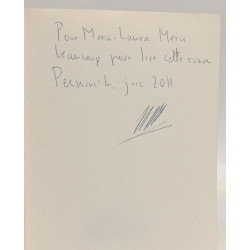 Pour Maria-Laura Merci
beaucoup pour lire cette
juin 2011